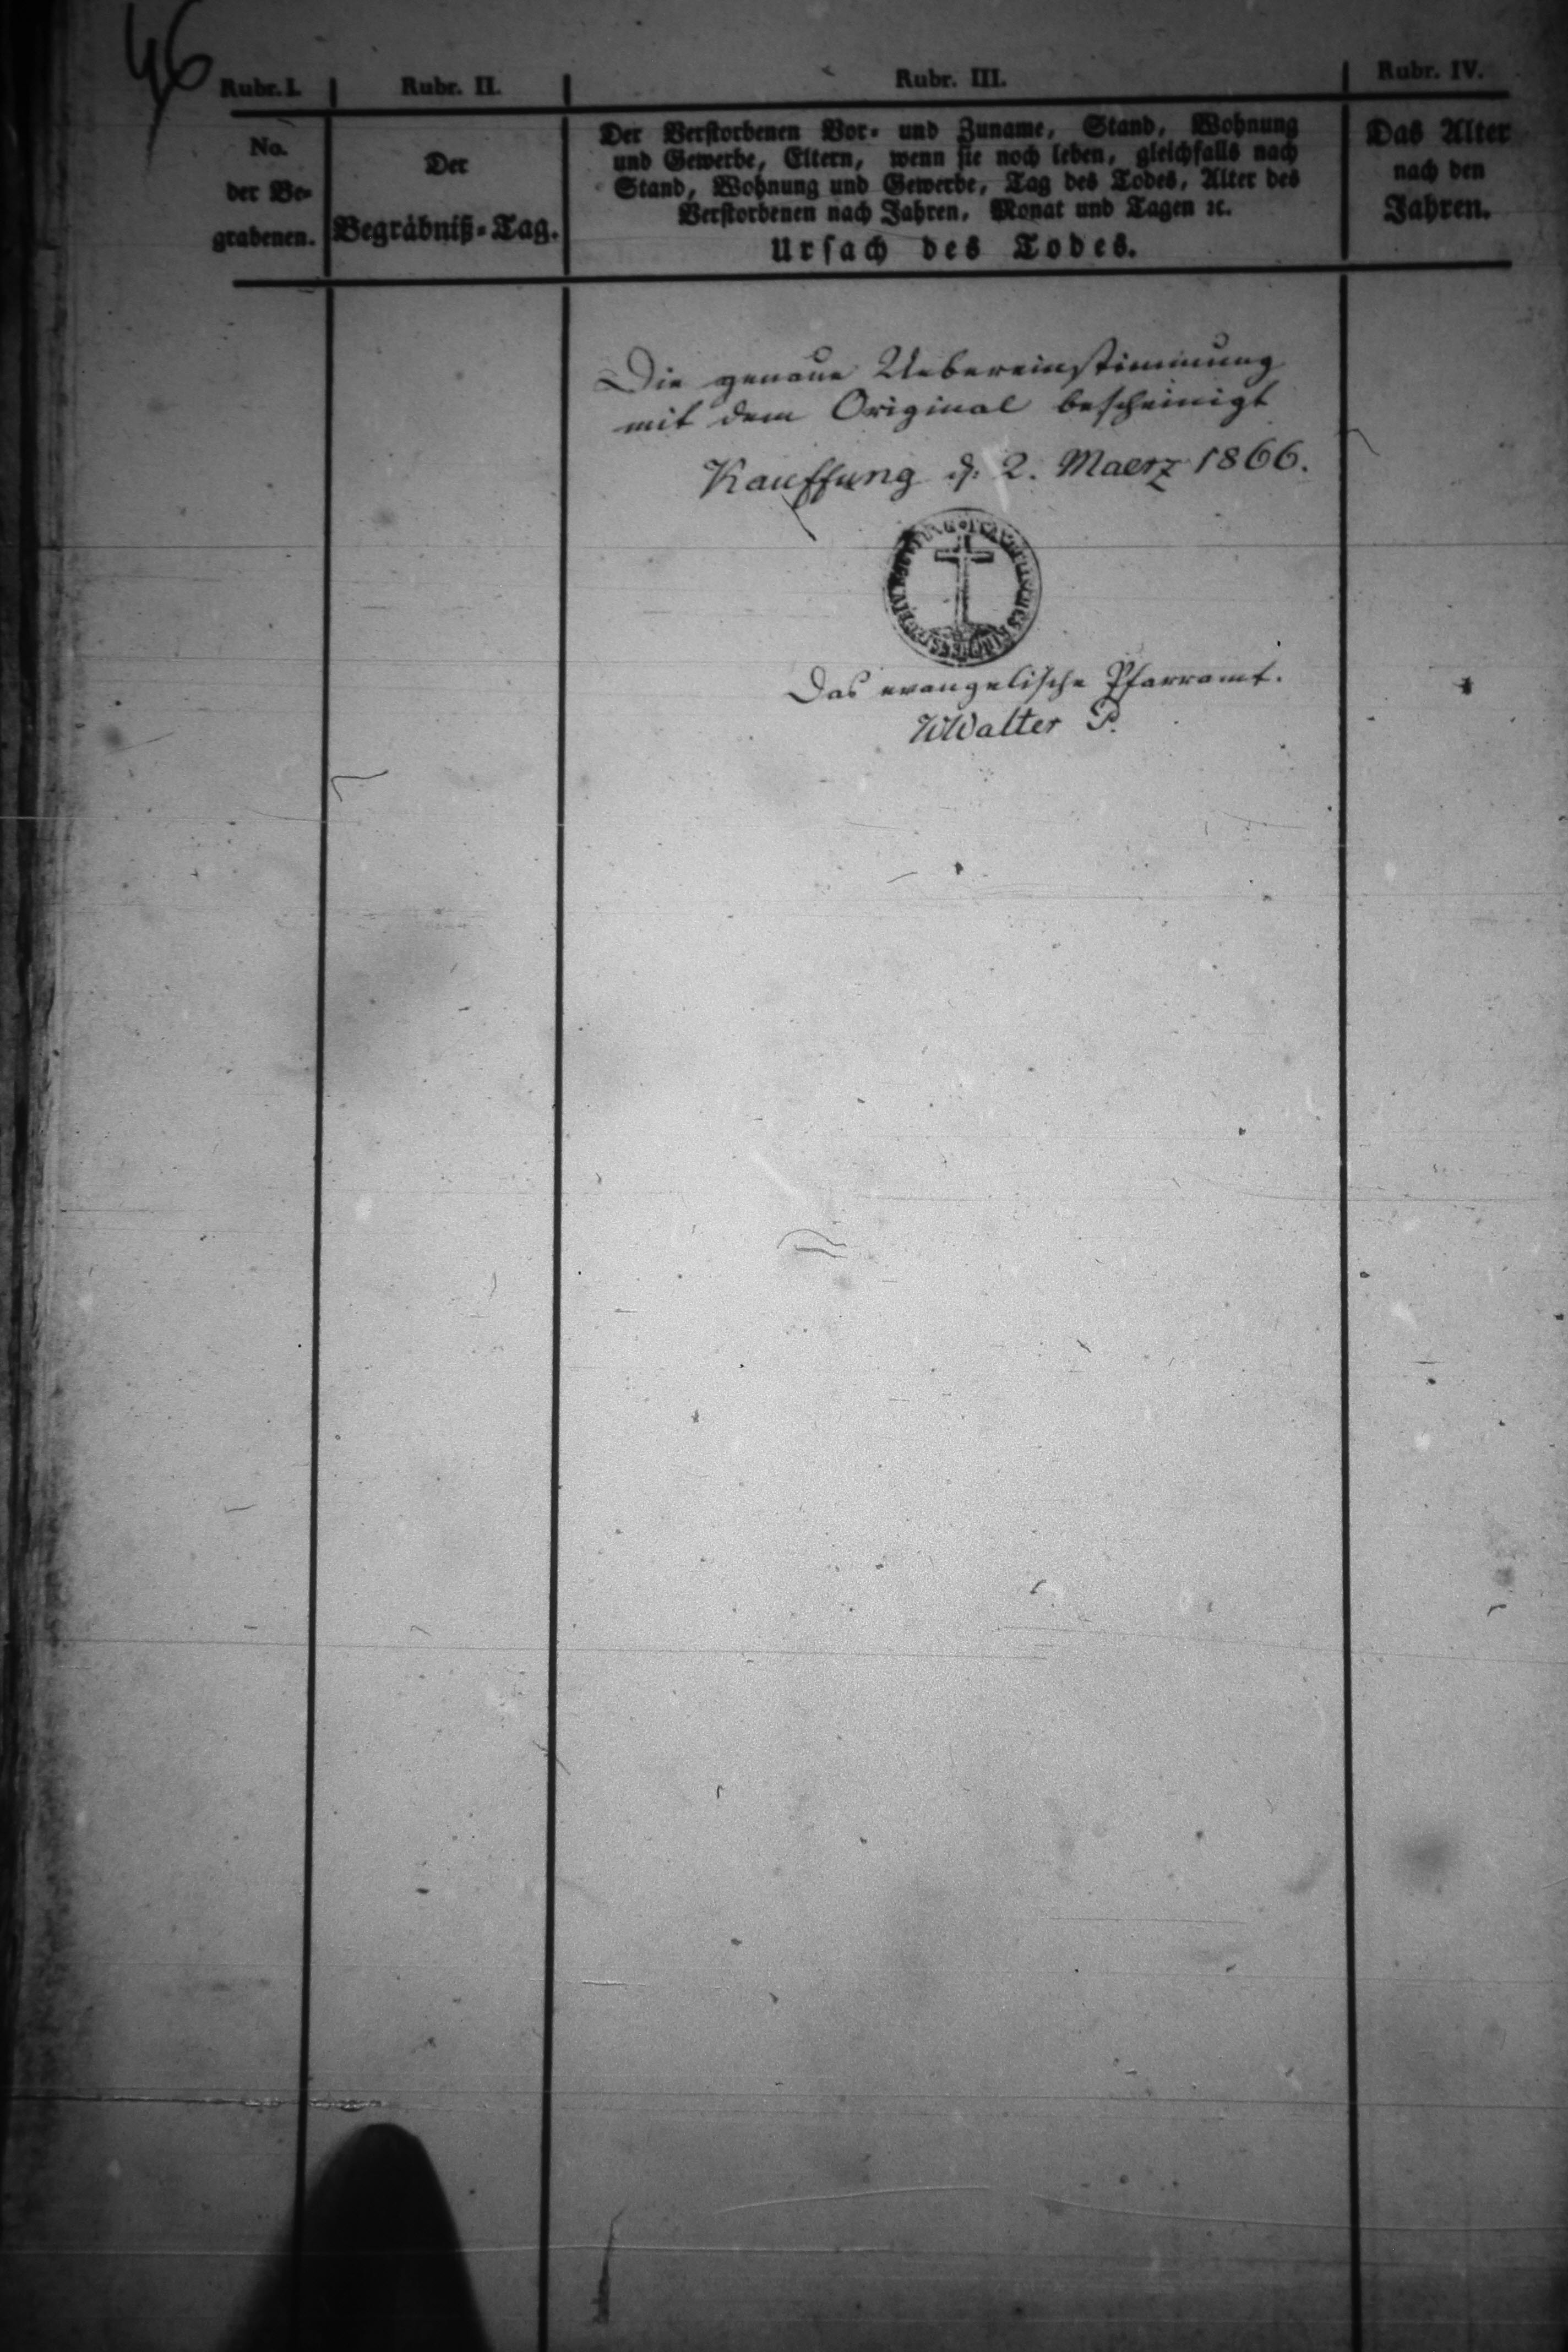 46
Rubr. I.
Rubr. II.
Rubr. III.
Rubr. IV.
No.
der Be-
grabenen.
Der
Begräbniß-Tag.
Der Verstorbenen Vor- und Zuname, Stand, Wohnung
und Gewerbe, Eltern, wenn sie noch leben, gleichfalls nach
Stand, Wohnung und Gewerbe, Tag des Todes, Alter des
Verstorbenen nach Jahren, Monat und Tagen ꝛc.
Ursach des Todes.
Das Alter
nach den
Jahren.
Die genaue Uebereinstimmung
mit dem Original bescheinigt
Kauffung d. 2. Maerz 1866.
Das evangelische Pfarramt.
WWalter P.